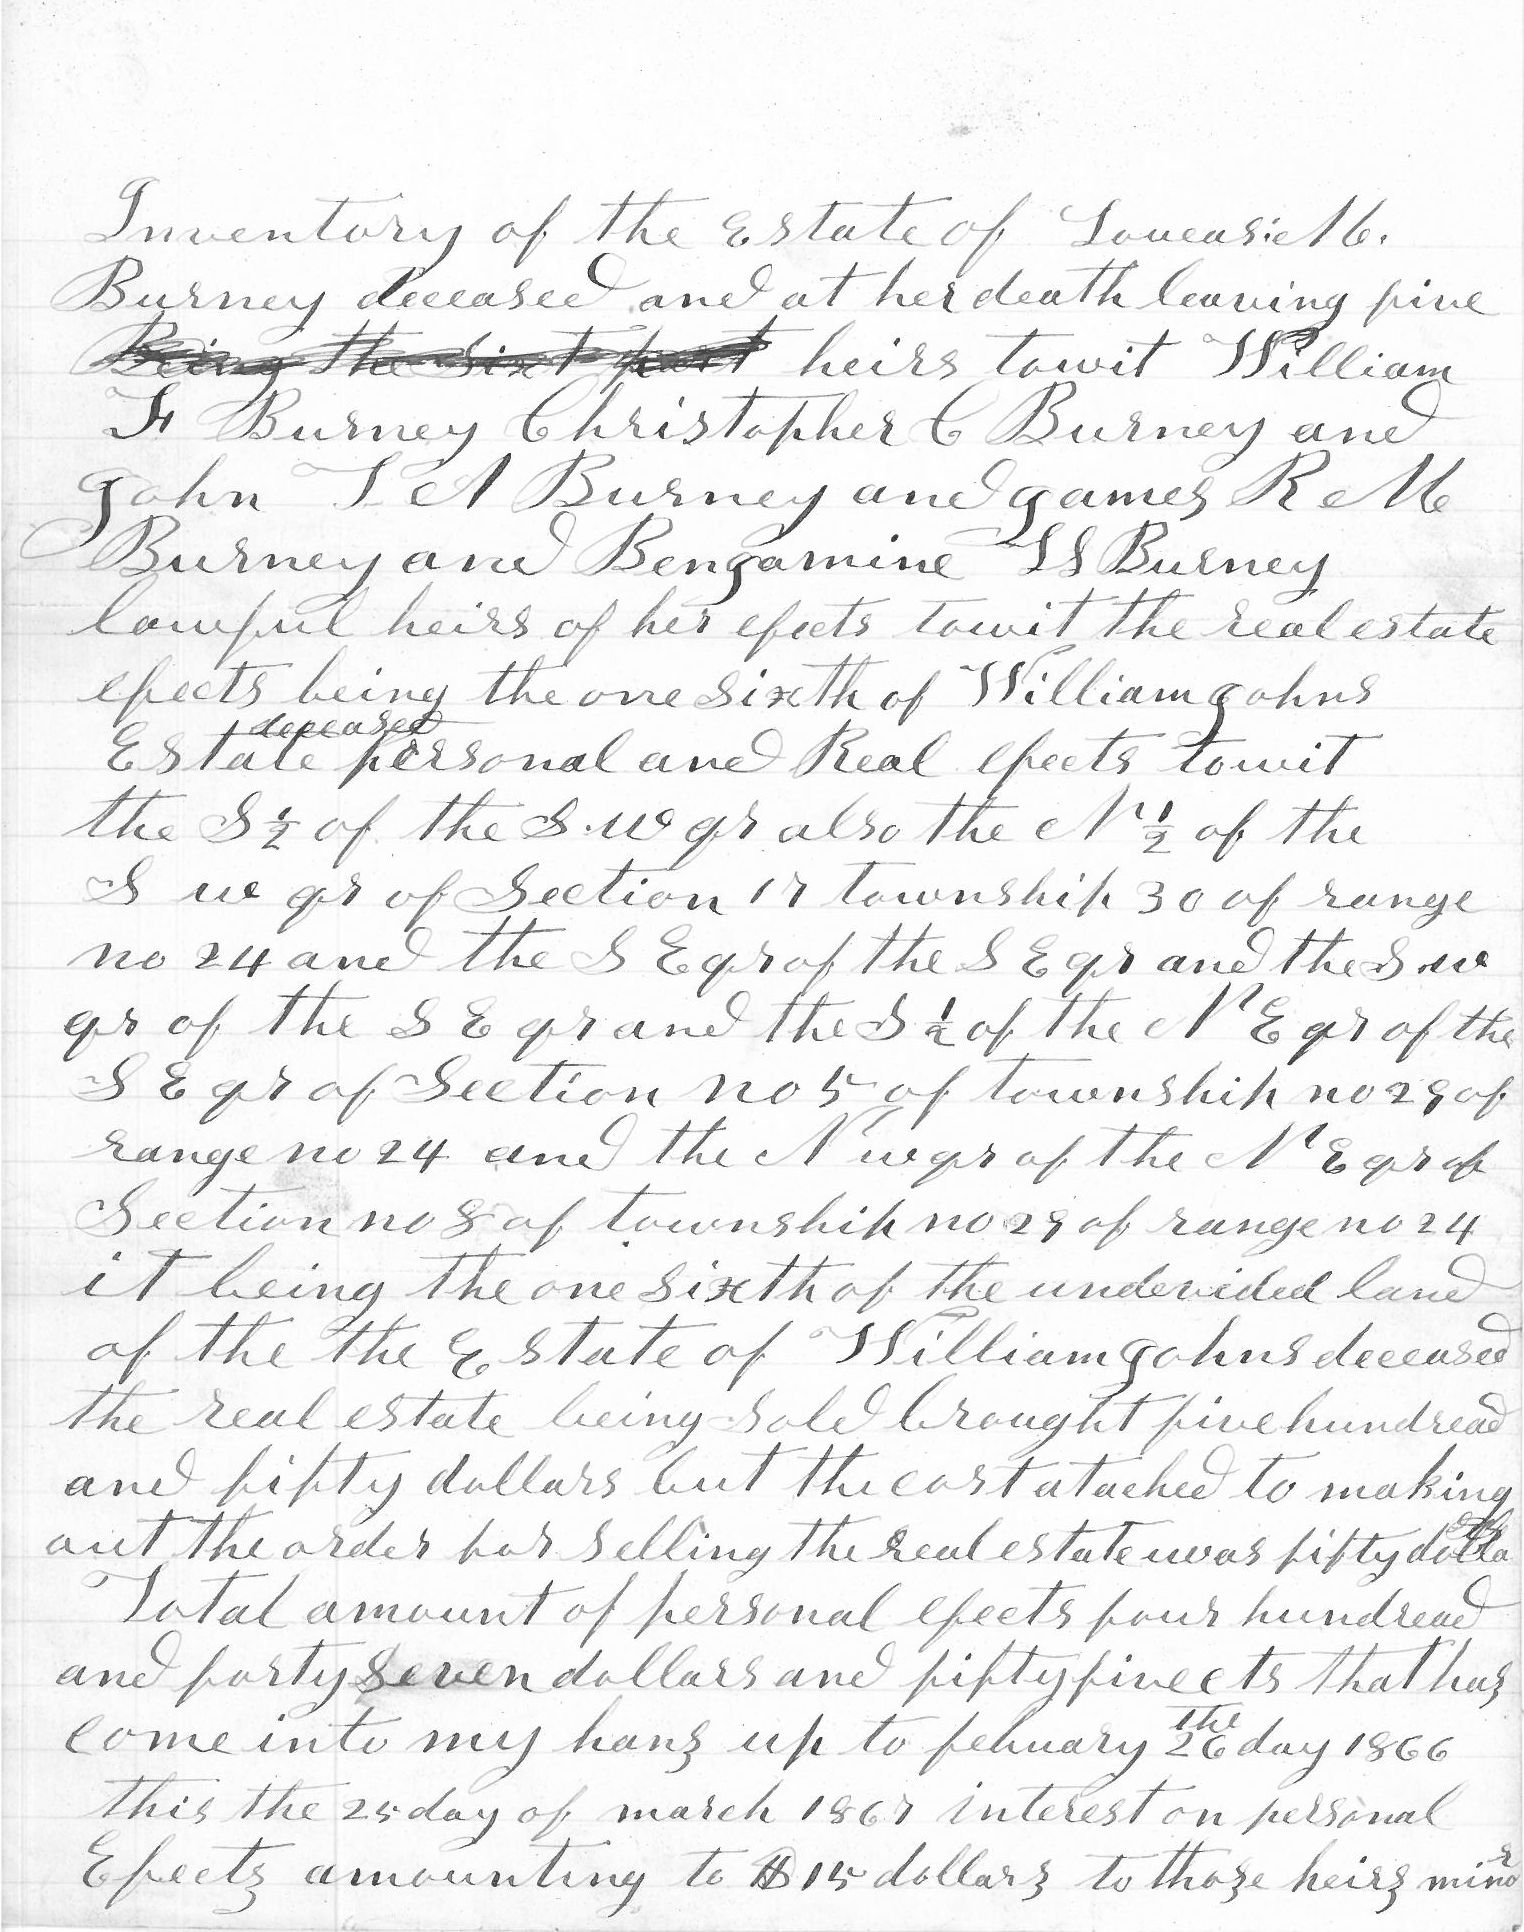 Inventory of the Estate of Loucasie M.
Burney deceased and at her death leaving five
Being the Sixt part heirs towit William
F Burney Christopher C Burney and
John T A Burney and James R M
Burney and Benjamine L S Burney
lawful heirs of her efects towit the real estate
efects being the one Sixth of William Johns
deceased
Estate personal and Real efects towit
the S ½ of the S.W qr also the N ½ of the
S W qr of Section 17 township 30 of range
no 24 and the S E qr of the S E qr and the S.W
qr of the S E qr and the S ½ of the N E qr of the
S E qr of Section no 5 of township no 29 of
range no 24 and the N W qr of the N E qr of
Section no 8 of township no 29 of range no 24
it being the one Sixth of the undevided land
of the the Estate of William Johns deceased
the real estate being sold brought five hundread
and fifty dollars but the cost atached to making
out the order for selling the real estate was fifty dolla
Total amount of personal efects four hundread
and forty seven dollars and fifty five cts that has
come into my hans up to febuary 26 the day 1866
this the 25 day of march 1867 interest on personal
Efects amounting to $15 dollars to those heirs minor